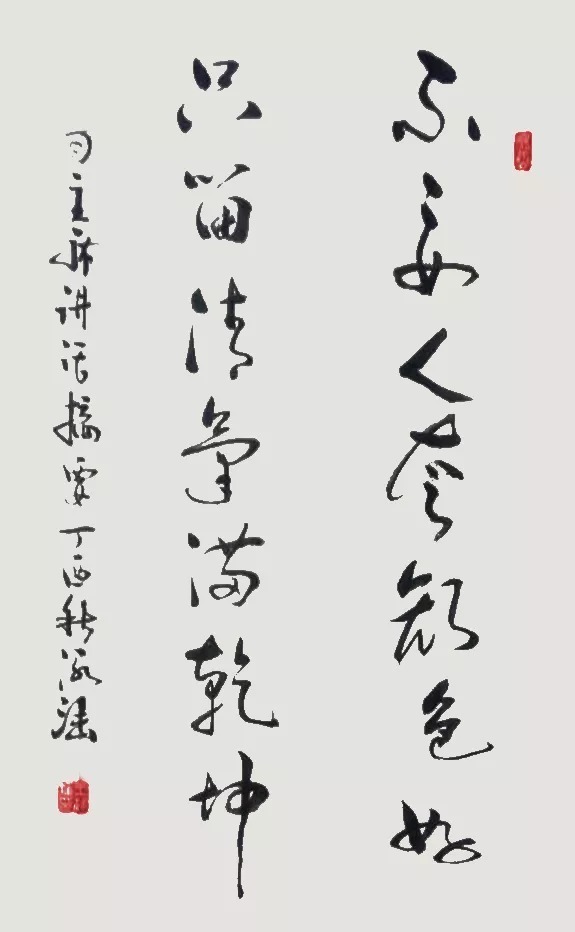 不要人夸颜色好
只留清气满乾坤
习主席讲话摘要丁酉秋